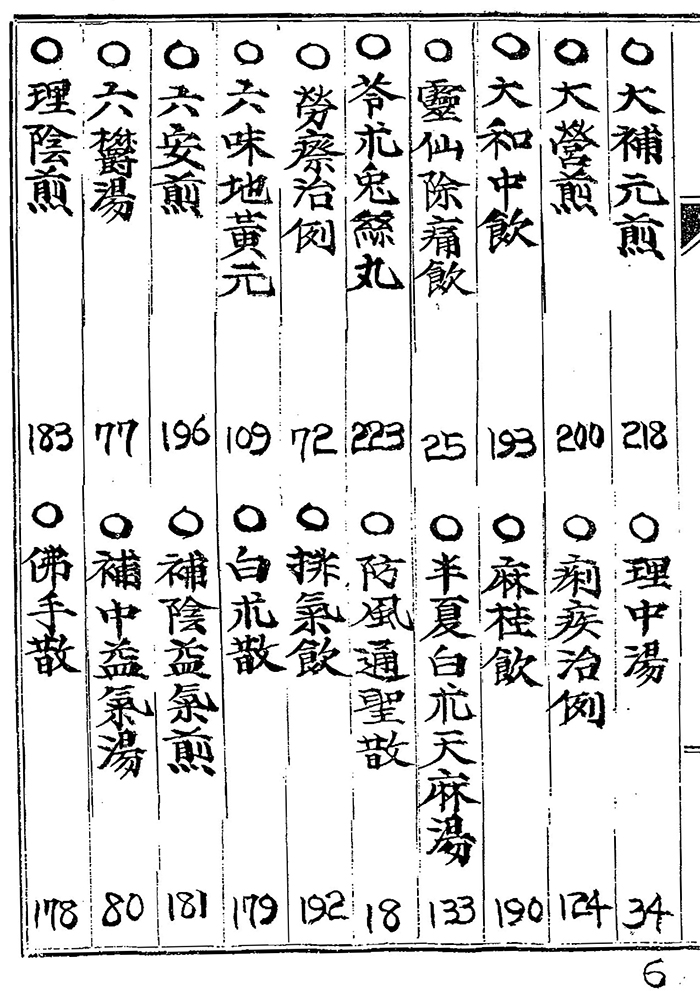 ○大補元煎 218
○大營煎 200
○大和中飮 193
○靈仙除痛飮 25
○苓朮兎絲丸 223
○勞瘵治例 72
○六味地黃元 109
○六安煎 196
○六鬱湯 77
○理陰煎 183
○理中湯 34
○痢疾治例 124
○麻桂飮 190
○半夏白朮天麻湯 133
○防風通聖散 18
○排氣飮 192
○白朮散 179
○補陰益氣煎 181
○補中益氣湯 80
○佛手散 178
6